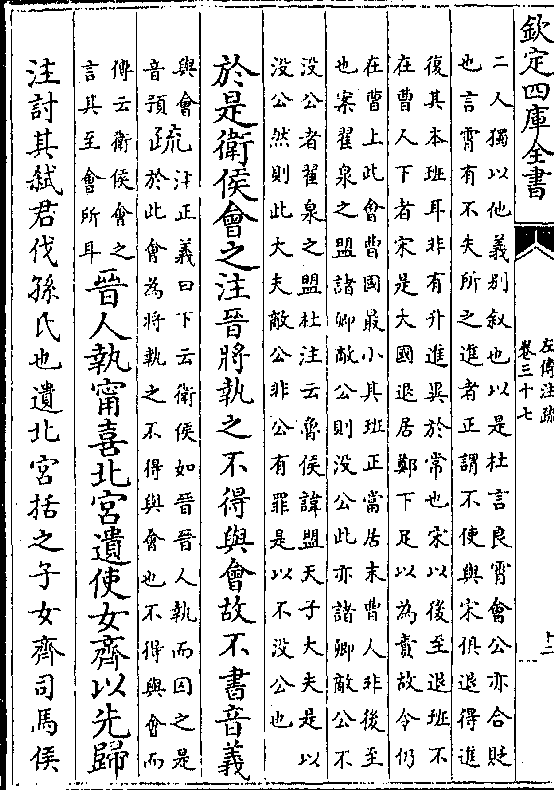 欽定四庫全書
左傳注疏
卷三十七
二人獨以他義别叙也以是杜言良霄會公亦合貶
也言霄有不失所之進者正謂不使與宋俱退得進
復其本班耳非有升進異於常也宋以後至退班不
在曹人下者宋是大國退居鄭下足以為責故令仍
在曹上此會曹國最小其班正當居末曹人非後至
也案翟泉之盟諸卿敵公則没公此亦諸卿敵公不
没公者翟泉之盟杜注云魯侯諱盟天子大夫是以
没公然則此大夫敵公非公有罪是以不没公也
於是衛侯會之注晉將執之不得與會故不書音義
與會
音預
疏
注正義曰下云衛侯如晉晉人執而囚之是
於此會為將執之不得與會也不得與會而
傳云衛侯會之
言其至會所耳
晉人執甯喜北宮遺使女齊以先歸
注討其弑君伐孫氏也遺北宮括之子女齊司馬侯